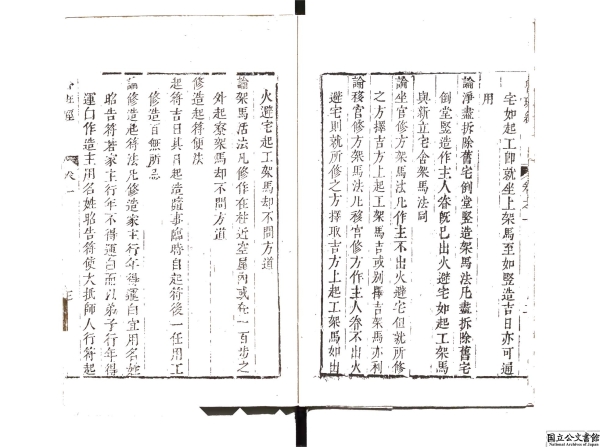 宅如起工即就坐上架馬至如竪造吉日亦可通
用
論淨盡拆除舊宅倒堂竪造架馬法凡盡拆除舊宅
倒堂竪造作主人眷旣已出火避宅如起工架馬
與新立宅舍架馬法同
論坐宮修方架馬法凡作主不出火避宅但就所修
之方擇吉方上起工架馬吉或別擇吉架馬亦利
論移宮修方架馬法凡移宮修方作主人眷不出火
避宅則就所修之方擇取吉方上起工架馬如出
火避宅起工架馬却不問方道
論架馬活法凡修作在柱近空屋內或在一百步之
外起寮架馬却不問方道
修造起符便法
起符吉日其月起造隨事臨時自起符後一任用工
修造百無所忌
論修造起符法凡修造家主行年得運自宜用名姓
昭告符若家主行年不得運自而以弟子行年得
運白作造主用名姓昭告符使大抵師人行符起
卷一
国立公文書館
National Archives of Japan